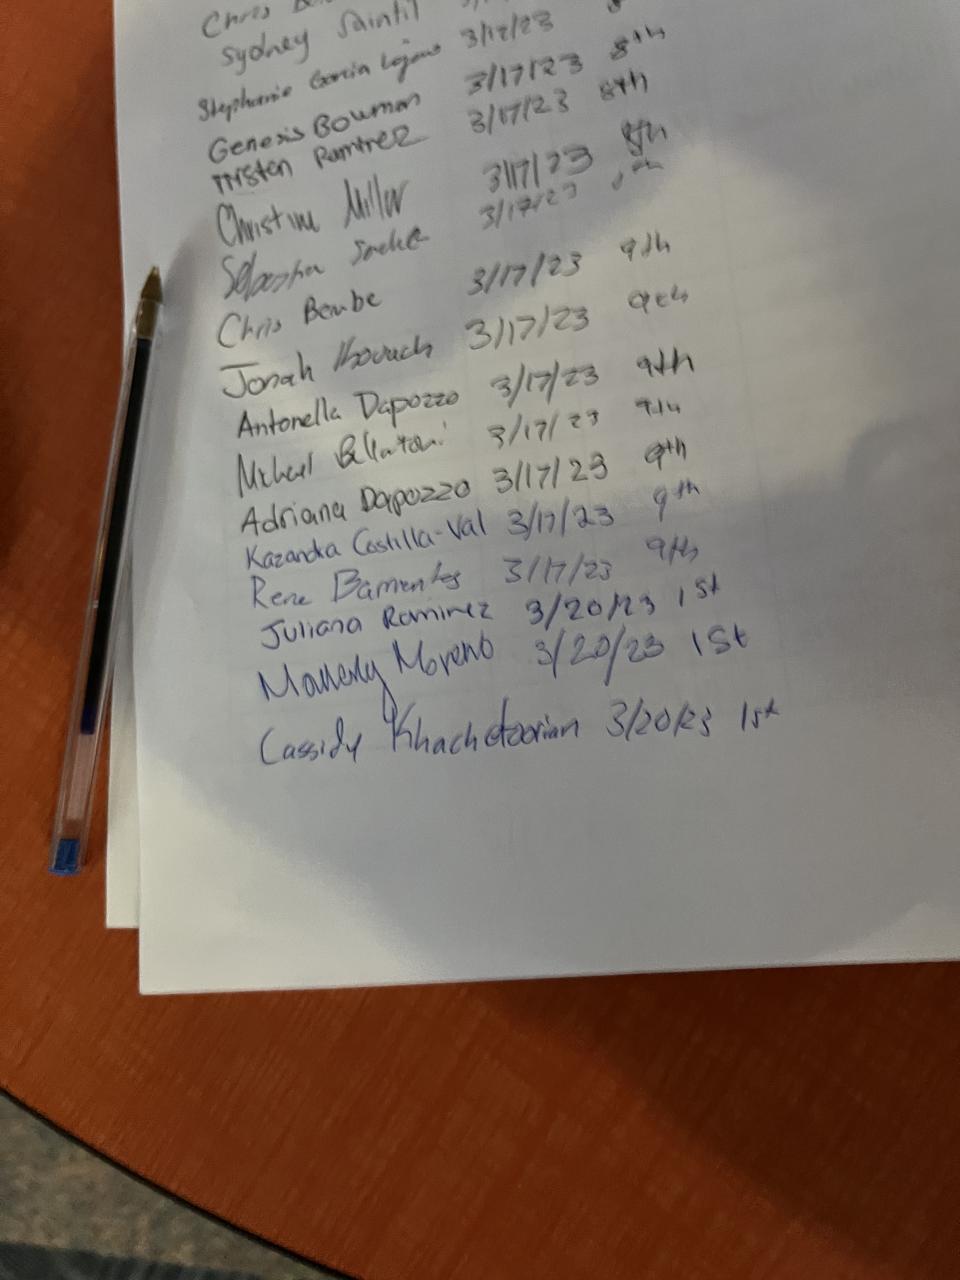 Chris
Sydney Saintil
Stephanie Garcia 3/17/23
Genesis Bowman 3/17/23 8th
Tristan Ramirez 3/17/23 8th
Christine Miller 3/17/23 8th
Sebastian 3/17/23 th
Chris Bembe 3/17/23 9th
Jonah 3/17/23 9th
Antonella Dapozzo 3/17/23 9th
Michael 3/17/23 9th
Adriana Dapozzo 3/17/23 9th
Kazandra Castilla-Val 3/17/23 9th
Rene 3/17/23 9th
Juliana Ramirez 3/20/23 1st
Moreno 3/20/23 1st
Cassidy Khachatoorian 3/20/23 1st